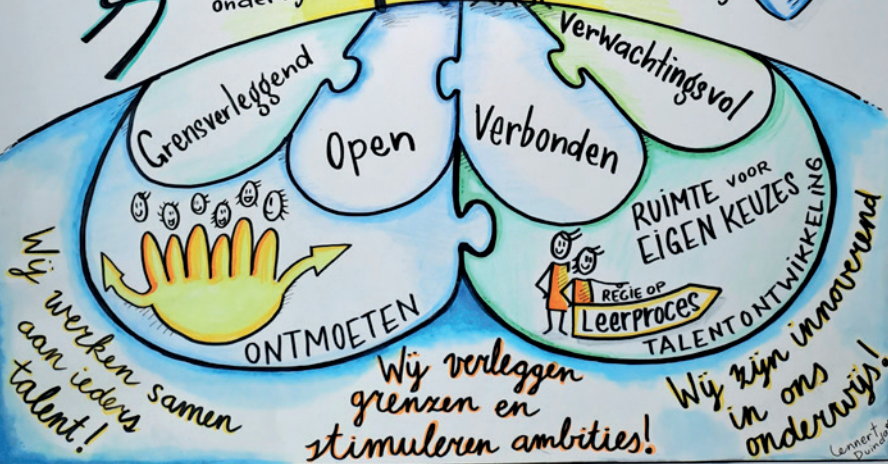 Grensverleggend
Open
Verbonden
Verwachtingsvol
ONTMOETEN
RUIMTE VOOR
EIGEN KEUZES
REGIE OP
Leerproces
TALENTONTWIKKELING
Wij werken samen
aan ieders
talent!
Wij verleggen
grenzen en
stimuleren ambities!
Wij zijn innoverend
in ons
onderwijs!
Lennert